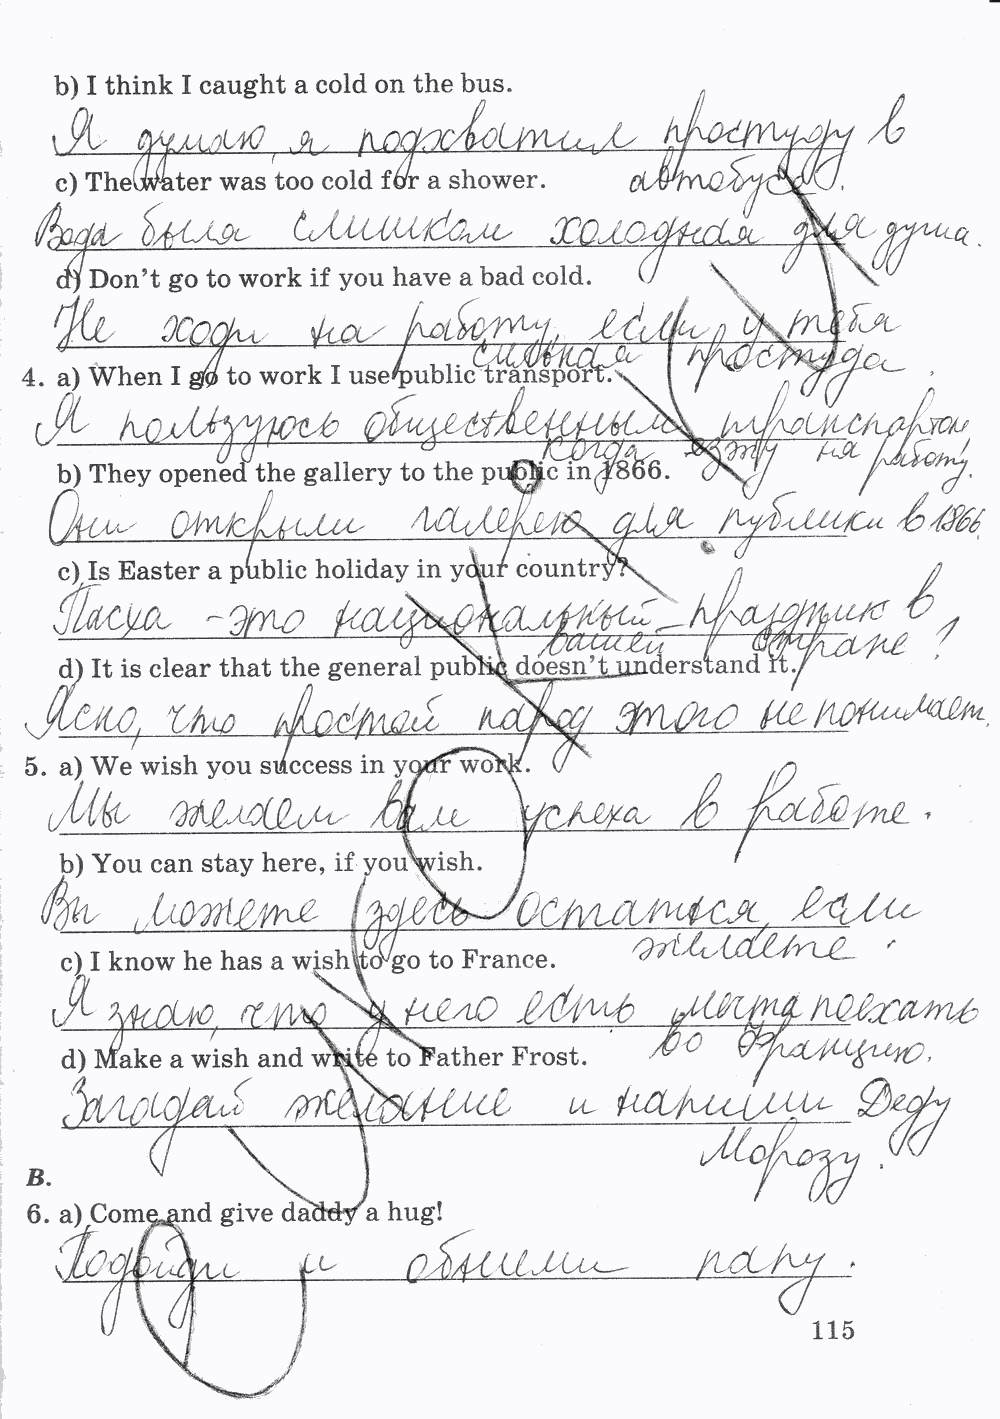 b) I think I caught a cold on the bus.
Я думаю, я подхватил простуду в
автобусе.
c) The water was too cold for a shower.
Вода была слишком холодная для душа.
d) Don't go to work if you have a bad cold.
Не ходи на работу, если у тебя
сильная простуда.
4. a) When I go to work I use public transport.
Я пользуюсь общественным транспортом
когда езжу на работу.
b) They opened the gallery to the public in 1866.
Они открыли галерею для публики в 1866.
c) Is Easter a public holiday in your country?
Пасха - это национальный праздник в
вашей стране?
d) It is clear that the general public doesn't understand it.
Ясно, что простой народ этого не понимает.
5. a) We wish you success in your work.
Мы желаем вам успеха в работе.
b) You can stay here, if you wish.
Вы можете здесь остаться, если
желаете.
c) I know he has a wish to go to France.
Я знаю, что у него есть мечта поехать
во Францию.
d) Make a wish and write to Father Frost.
Загадай желание и напиши Деду
Морозу.
B.
6. a) Come and give daddy a hug!
Подойди и обними папу.
115